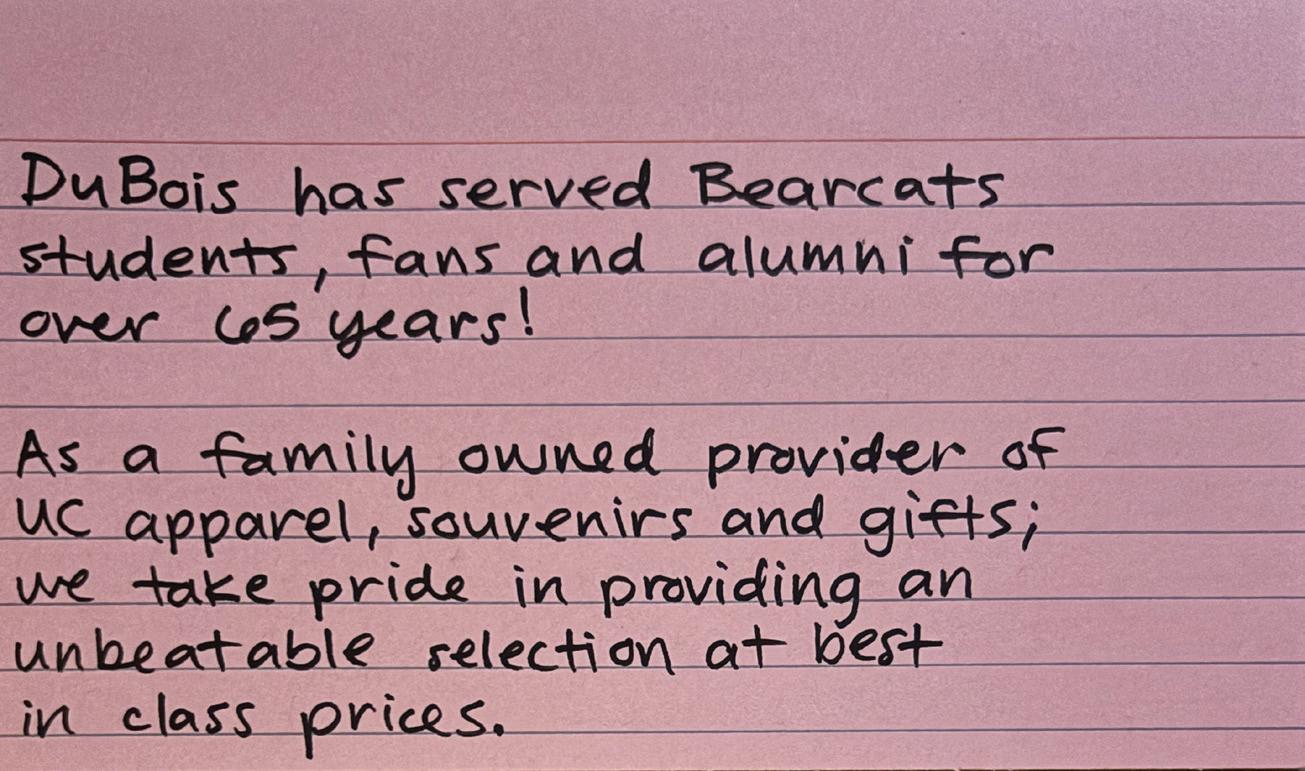 DuBois has served Bearcats
students, fans and alumni for
over 65 years!
As a family owned provider of
UC apparel, souvenirs and gifts;
we take pride in providing an
unbeatable selection at best
in class prices.